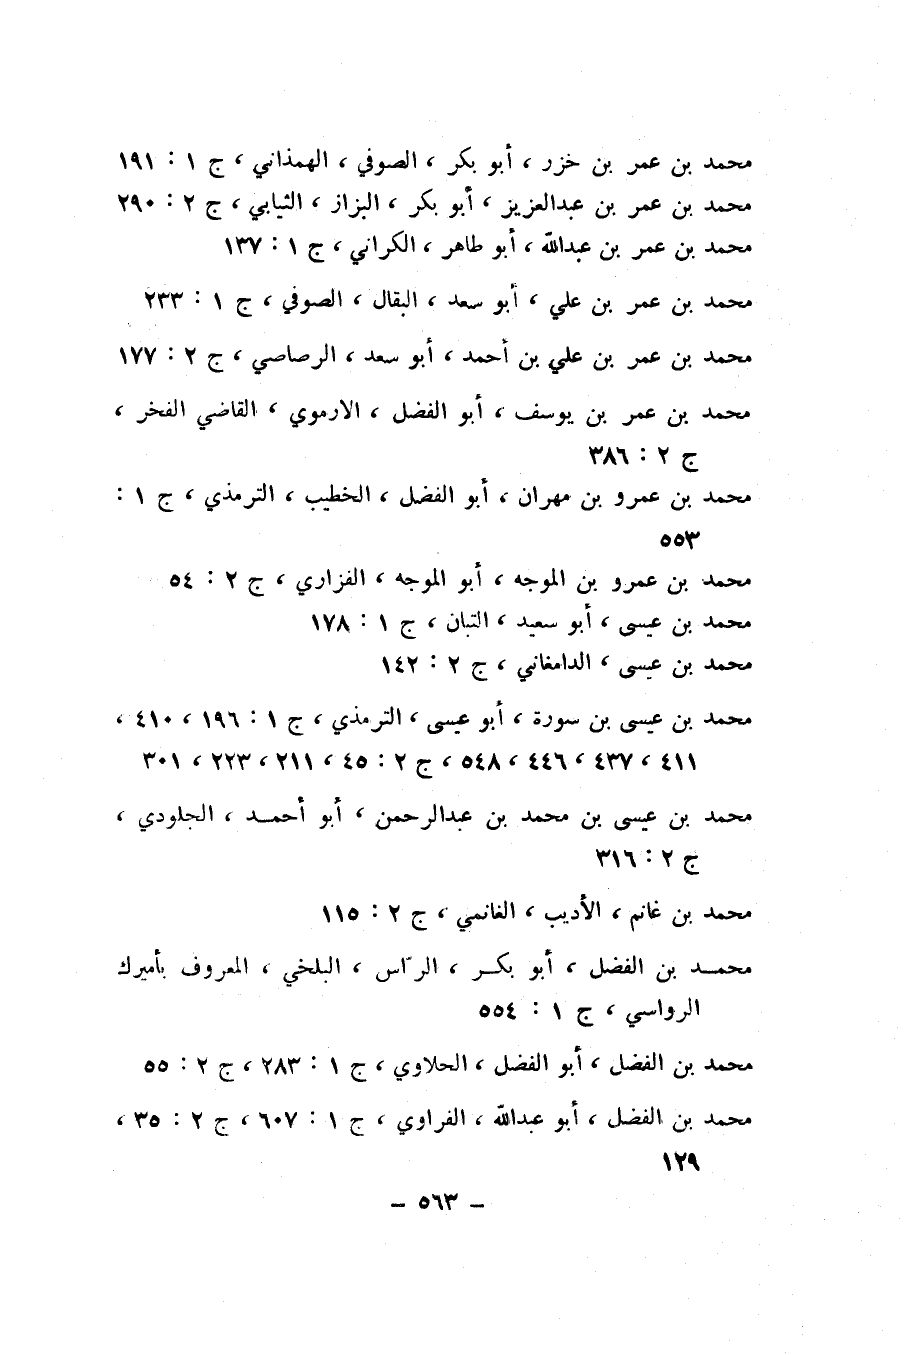 محمد بن عمر بن خزر ، أبو بكر ، الصوفي ، الهمذاني ، ج ١ : ١٩١
محمد بن عمر بن عبدالعزيز ، أبو بكر ، البزاز ، الثيابي ، ج ٢ : ٢٩٠
محمد بن عمر بن عبدالله ، أبو طاهر ، الكراني ، ج ١ : ١٣٧
محمد بن عمر بن علي ، أبو سعد ، البقال ، الصوفي ، ج ١ : ٢٣٣
محمد بن عمر بن علي بن أحمد ، أبو سعد ، الرصاصي ، ج ٢ : ١٧٧
محمد بن عمر بن يوسف ، أبو الفضل ، الارموي ، القاضي الفخر ،
ج ٢ : ٣٨٦
محمد بن عمرو بن مهران ، أبو الفضل ، الخطيب ، الترمذي ، ج ١ :
٥٥٣
محمد بن عمرو بن الموجه ، أبو الموجه ، الفزاري ، ج ٢ : ٥٤
محمد بن عيسى ، أبو سعيد ، التبان ، ج ١ : ١٧٨
محمد بن عيسى ، الدامغاني ، ج ٢ : ١٤٢
محمد بن عيسى بن سورة ، أبو عيسى ، الترمذي ، ج ١ : ١٩٦ ، ٤١٠ ،
٤١١ ، ٤٣٧ ، ٤٤٦ ، ٥٤٨ ، ج ٢ : ٤٥ ، ٢١١ ، ٢٢٣ ، ٣٠١
محمد بن عيسى بن محمد بن عبدالرحمن ، أبو أحمـد ، الجلودي ،
ج ٢ : ٣١٦
محمد بن غانم ، الأديب ، الغانمي ، ج ٢ : ١١٥
محمـد بن الفضل ، أبو بكـر ، الرّاس ، البلخي ، المعروف بأميرك
الرواسي ، ج ١ : ٥٥٤
محمد بن الفضل ، أبو الفضل ، الحلاوي ، ج ١ : ٢٨٣ ، ج ٢ : ٥٥
محمد بن الفضل ، أبو عبدالله ، الفراوي ، ج ١ : ٦٠٧ ، ج ٢ : ٣٥ ،
١٢٩
– ٥٦٣ –